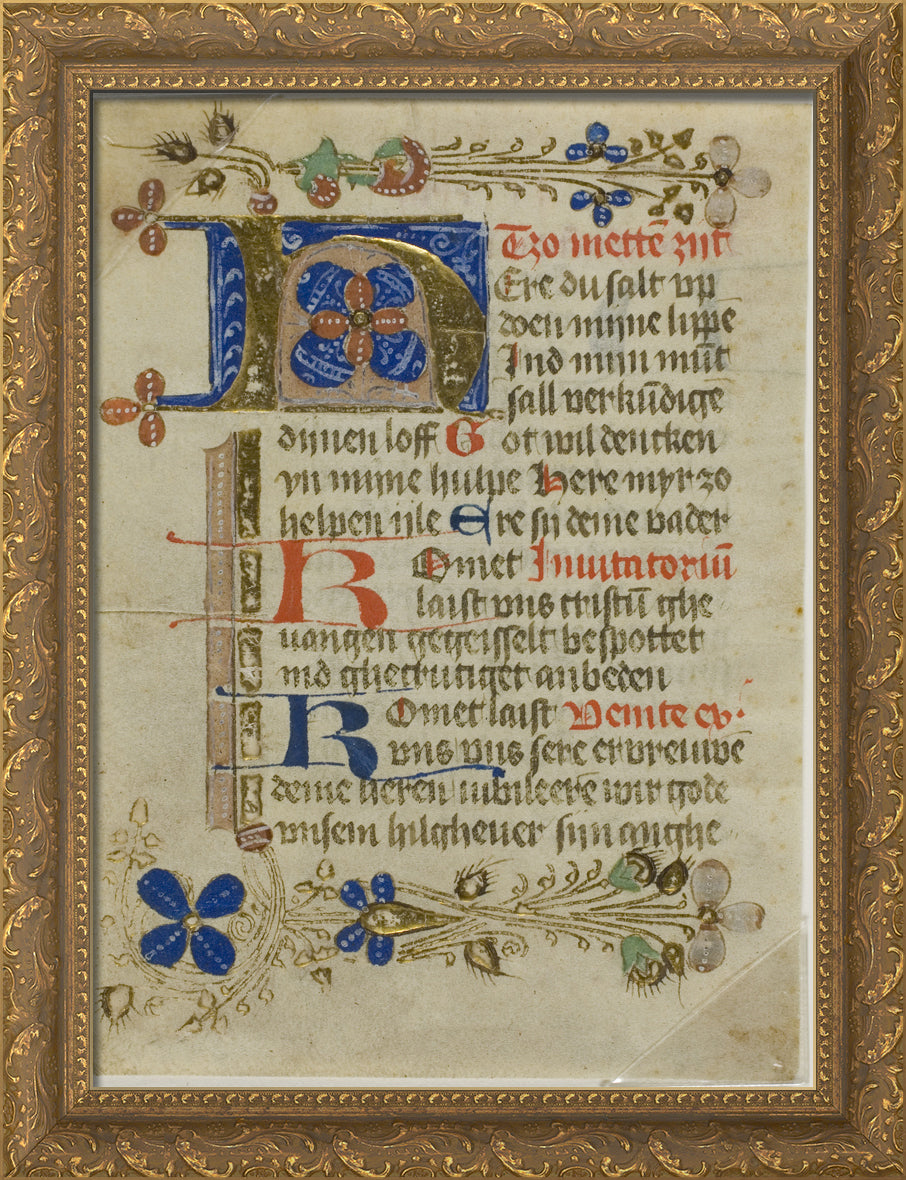 Tzo mettē zijt
Ere du salt vp
doen mijne lippe
Ind mijn mūt
sall verkūdige
dijnen loff Got wil dencken
yn mijne hulpe Here myr zo
helpen ijle Ere sij deme vader
Komet Inuitatoriū
laist vns cristū ghe
uangen gegeisselt bespottet
ind ghecrutiget anbeden
Komet laist Venite ex·
vns vns sere ervreuwē
deme heren iubileerē wir gode
vnsem hilgheuer sijn anghe